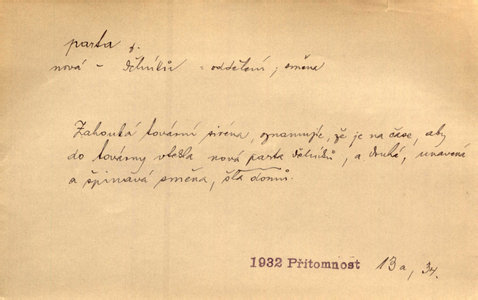 parta f.
nová – dělníků = oddělení; směna
Zahouká tovární siréna, oznamujíc, že je na čase, aby
do továrny vtekla nová parta dělníků, a druhá, unavená
a špinavá směna, šla domů.
1932 Přítomnost 13a, 34.